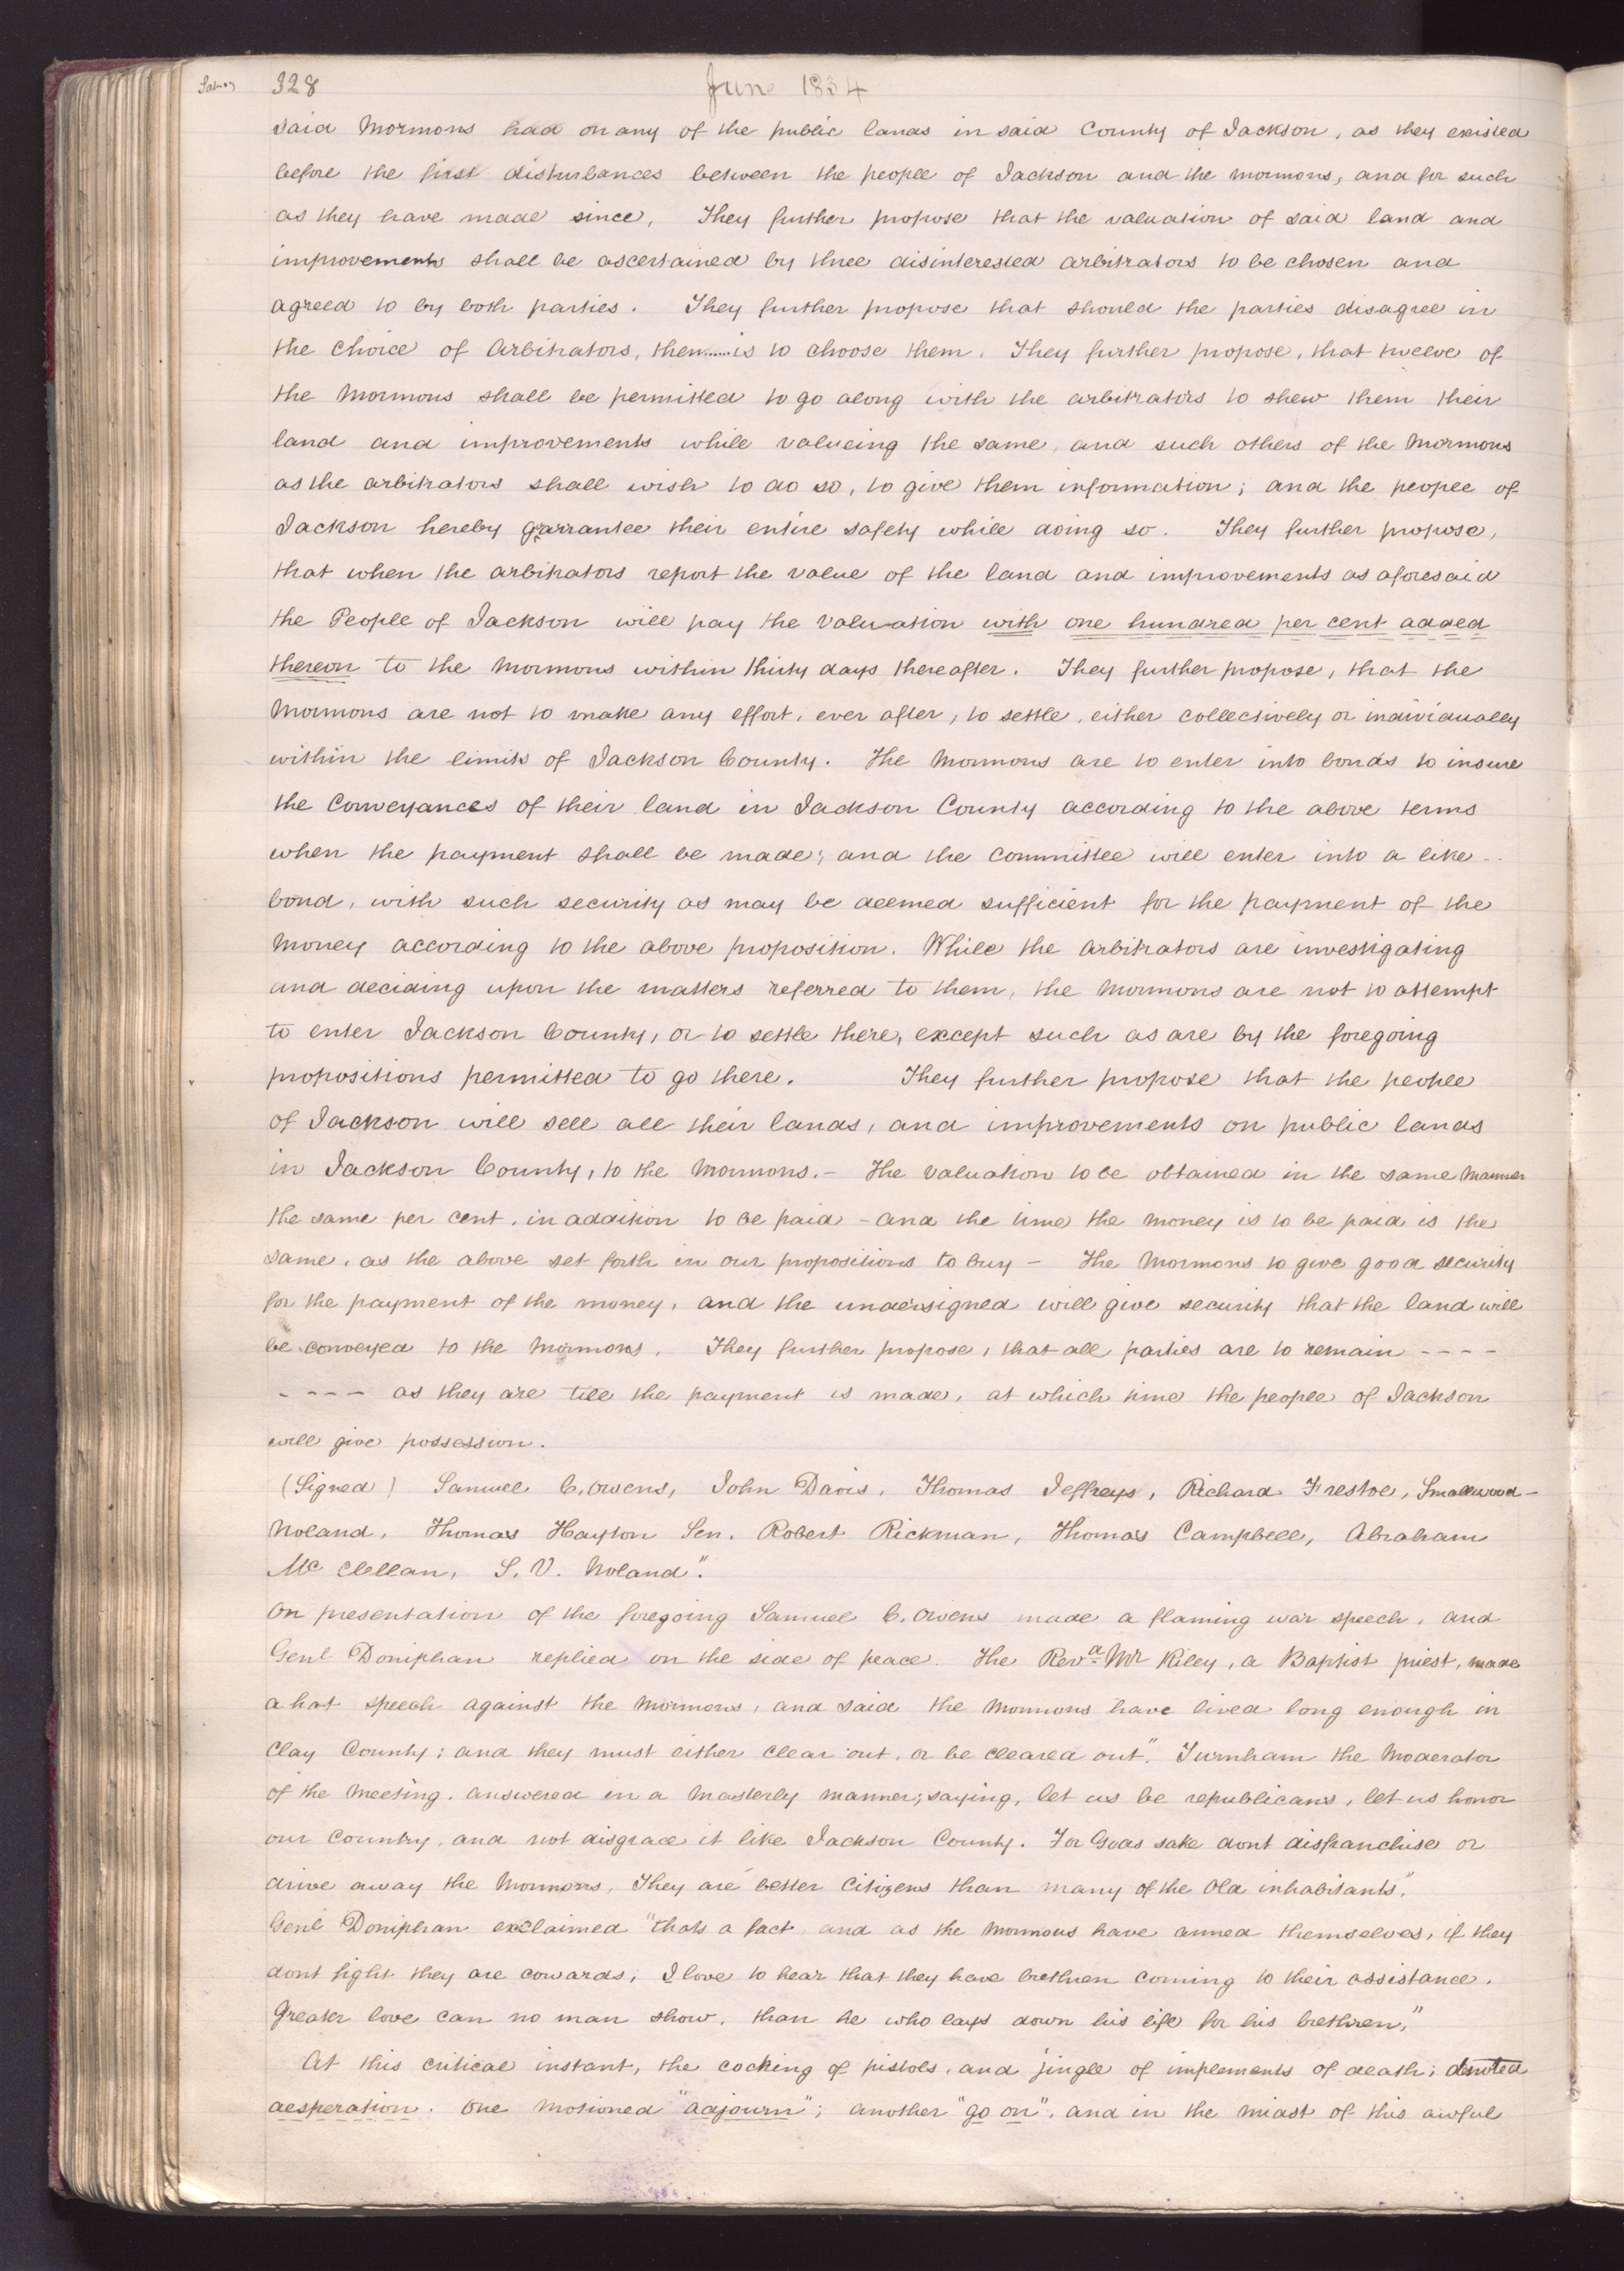 328
June 1834
said Mormons had on any of the public lands in said County of Jackson, as they existed
before the first disturbances between the people of Jackson and the mormons, and for such
as they have made since. They further propose that the valuation of said land and
improvements shall be ascertained by three disinterested arbitrators to be chosen and
agreed to by both parties. They further propose that should the parties disagree in
the choice of Arbitrators, then......is to choose them. They further propose, that twelve of
the Mormons shall be permitted to go along with the arbitrators to shew them their
land and improvements while valueing the same, and such others of the Mormons
as the arbitrators shall wish to do so, to give them information; and the people of
Jackson hereby garrantee their entire safety while doing so. They further propose,
that when the arbitrators report the value of the land and improvements as aforesaid
the People of Jackson will pay the valuation with one hundred per cent added
thereon to the Mormons within thirty days thereafter. They further propose, that the
Mormons are not to make any effort, ever after, to settle, either collectively or individually
within the limits of Jackson County. The Mormons are to enter into bonds to insure
the Conveyances of their land in Jackson County according to the above terms
when the payment shall be made; and the Committee will enter into a like --
bond, with such security as may be deemed sufficient for the payment of the
money according to the above proposition. While the Arbitrators are investigating
and deciding upon the matters referred to them, the Mormons are not to attempt
to enter Jackson County, or to settle there, except such as are by the foregoing
propositions permitted to go there. They further propose that the people
of Jackson will sell all their lands, and improvements on public lands
in Jackson County, to the Mormons.— The valuation to be obtained in the same manner
the same per cent. in addition to be paid — and the time the money is to be paid is the
same, as the above set forth in our propositions to buy — The Mormons to give good security
for the payment of the money, and the undersigned will give security that the land will
be conveyed to the Mormons. They further propose, that all parties are to remain ----
---- as they are till the payment is made, at which time the people of Jackson
will give possession.
(Signed) Samuel C. Owens, John Davis, Thomas Jeffreys, Richard Frestoe, Smallwood-
Noland, Thomas Hayton Sen. Robert Rickman, Thomas Campbell, Abraham
Mc Clellan, S. V. Noland".
On presentation of the foregoing Samuel C. Owens made a flaming war speech, and
Genl Doniphan replied on the side of peace. The Revd. Mr Riley, a Baptist priest, made
a hot speech against the Mormons, and said the Mormons have lived long enough in
Clay County; and they must either clear out, or be cleared out". Turnham the Moderator
of the meeting, answered in a masterly manner; saying, let us be republicans, let us honor
our Country, and not disgrace it like Jackson County. For Gods sake dont disfranchise or
drive away the Mormons, They are better Citizens than many of the Old inhabitants".
Genl Doniphan exclaimed "thats a fact, and as the Mormons have armed themselves, if they
dont fight they are cowards, I love to hear that they have brethren coming to their assistance.
Greater love can no man show, than he who lays down his life for his brethren."
At this critical instant, the cocking of pistols, and jingle of implements of death; denoted
desperation. One motioned "adjourn"; another "go on", and in the midst of this awful